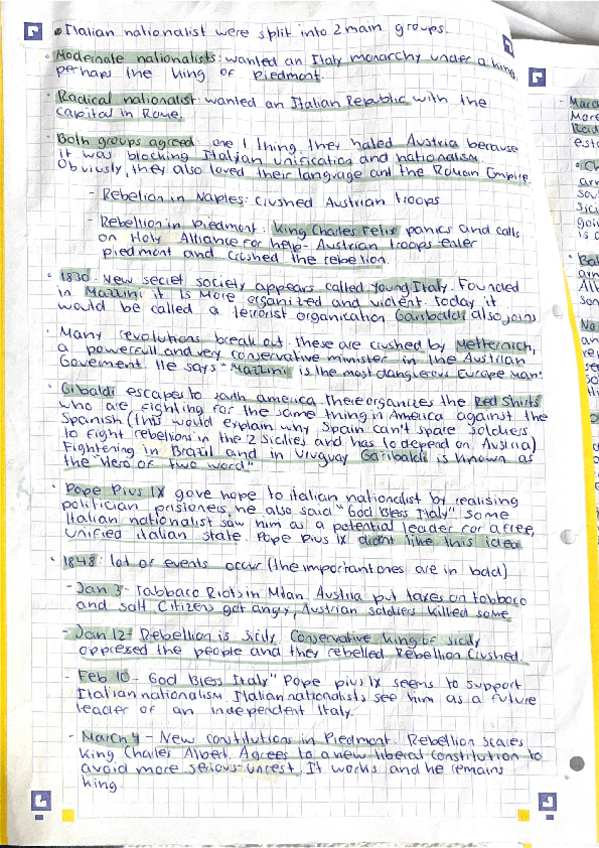 • Italian nationalist were split into 2 main groups.
• Modernate nationalists: wanted an Italy monarchy under a king,
perhaps the king of Piedmont.
• Radical nationalist: wanted an Italian Republic with the
capital in Rome.
• Both groups agreed one 1 thing, they hated Austria because
it was blocking Italian unification and nationalism.
Obviously, they also loved their language and the Roman Empire
- Rebelion in Naples: Crushed Austrian troops
- Rebellion in Piedmont: King Charles Felix panics and calls
on Holy Alliance for help- Austrian troops enter
piedmont and crushed the rebelion.
• 1830- New secret society appears called Young Italy. Founded
in Mazzini it is more organized and violent. today it
would be called a terrorist organication Garibaldi also joins
• Many revolutions break out. these are crushed by Metternich,
a powerfull and very conservative minister in the Austrian
Goverment. He says "Mazzini is the most danglerous Europe man"
• Gibaldi escapes to south america. there organizes the Red Shirts
who are fighting for the same thing in America against the
Spanish (this would explain why Spain can't spare soldiers
to fight rebelions in the 2 Sicilies and has to depend on Austria)
Fightening in Brazil and in Uruguay Garibaldi is known as
the "Hero of two word"
• Pope Pius IX gave hope to italian nationalist by realising
politician prisioners, he also said "God Bless Italy" some
Italian nationalist saw him as a potential leader for a free,
unified italian state. Pope pius IX didnt like this idea
• 1848: lot of events occur (the important ones are in bold)
- Jan 3- Tabbaco Riots in Milan. Austria put taxes on tabbaco
and salt. Citizens got angry, Austrian soldiers killed some
- Jan 12- Rebellion is sicily Conservative king of sicily
oppresed the people and they rebelled Rebellion Crushed.
- Feb 10- God Bless Italy" Pope pius IX seems to support
Italian nationalism. Italian nationalists see him as a future
leader of an independent Italy.
- March 4- New constitutions in Piedmont. Rebellion scares
King Charles Albert. Agrees to a new liberal constitution to
avoid more serious unrest. It works and he remains
king.